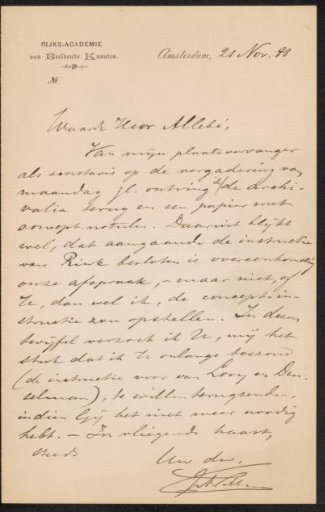 RIJKS-ACADEMIE
van Beeldende Kunsten.
Amsterdam, 21 Nov. 90
No
Waarde Heer Allebé,
Van mijn plaatsvervanger
als secretaris op de vergadering van
maandag jl. ontving ik de Archi-
valia terug en een papier met
concept-notulen. Daaruit blijkt
wel, dat aangaande de instructie
van Rink besloten is overeenkomstig
onze afspraak, maar niet, of
U, dan wel ik, de concept-in-
structie zou opstellen. In dezen
twijfel verzoek ik U, mij het
stuk dat ik U onlangs toezond
(de instructie voor van Looy en Der-
selman), te willen terugzenden,
indien Gij het niet meer noodig
hebt. — In vliegende haast,
steeds
Uw dw.